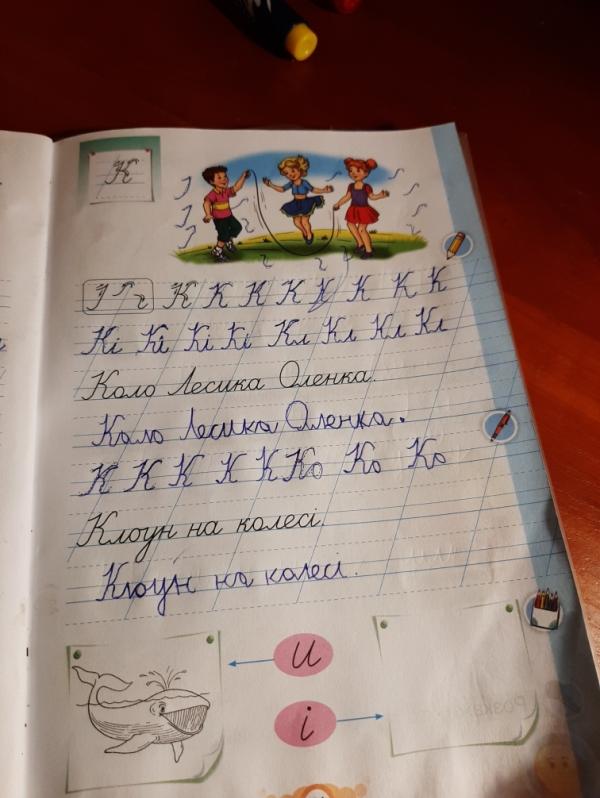 К
К К К К К К К К
Кі Кі Кі Кі Кл Кл Кл Кл
Коло Лесика Оленка.
Коло Лесика Оленка.
К К К К К Ко Ко Ко
Клоун на колесі.
Клоун на колесі.
и
і